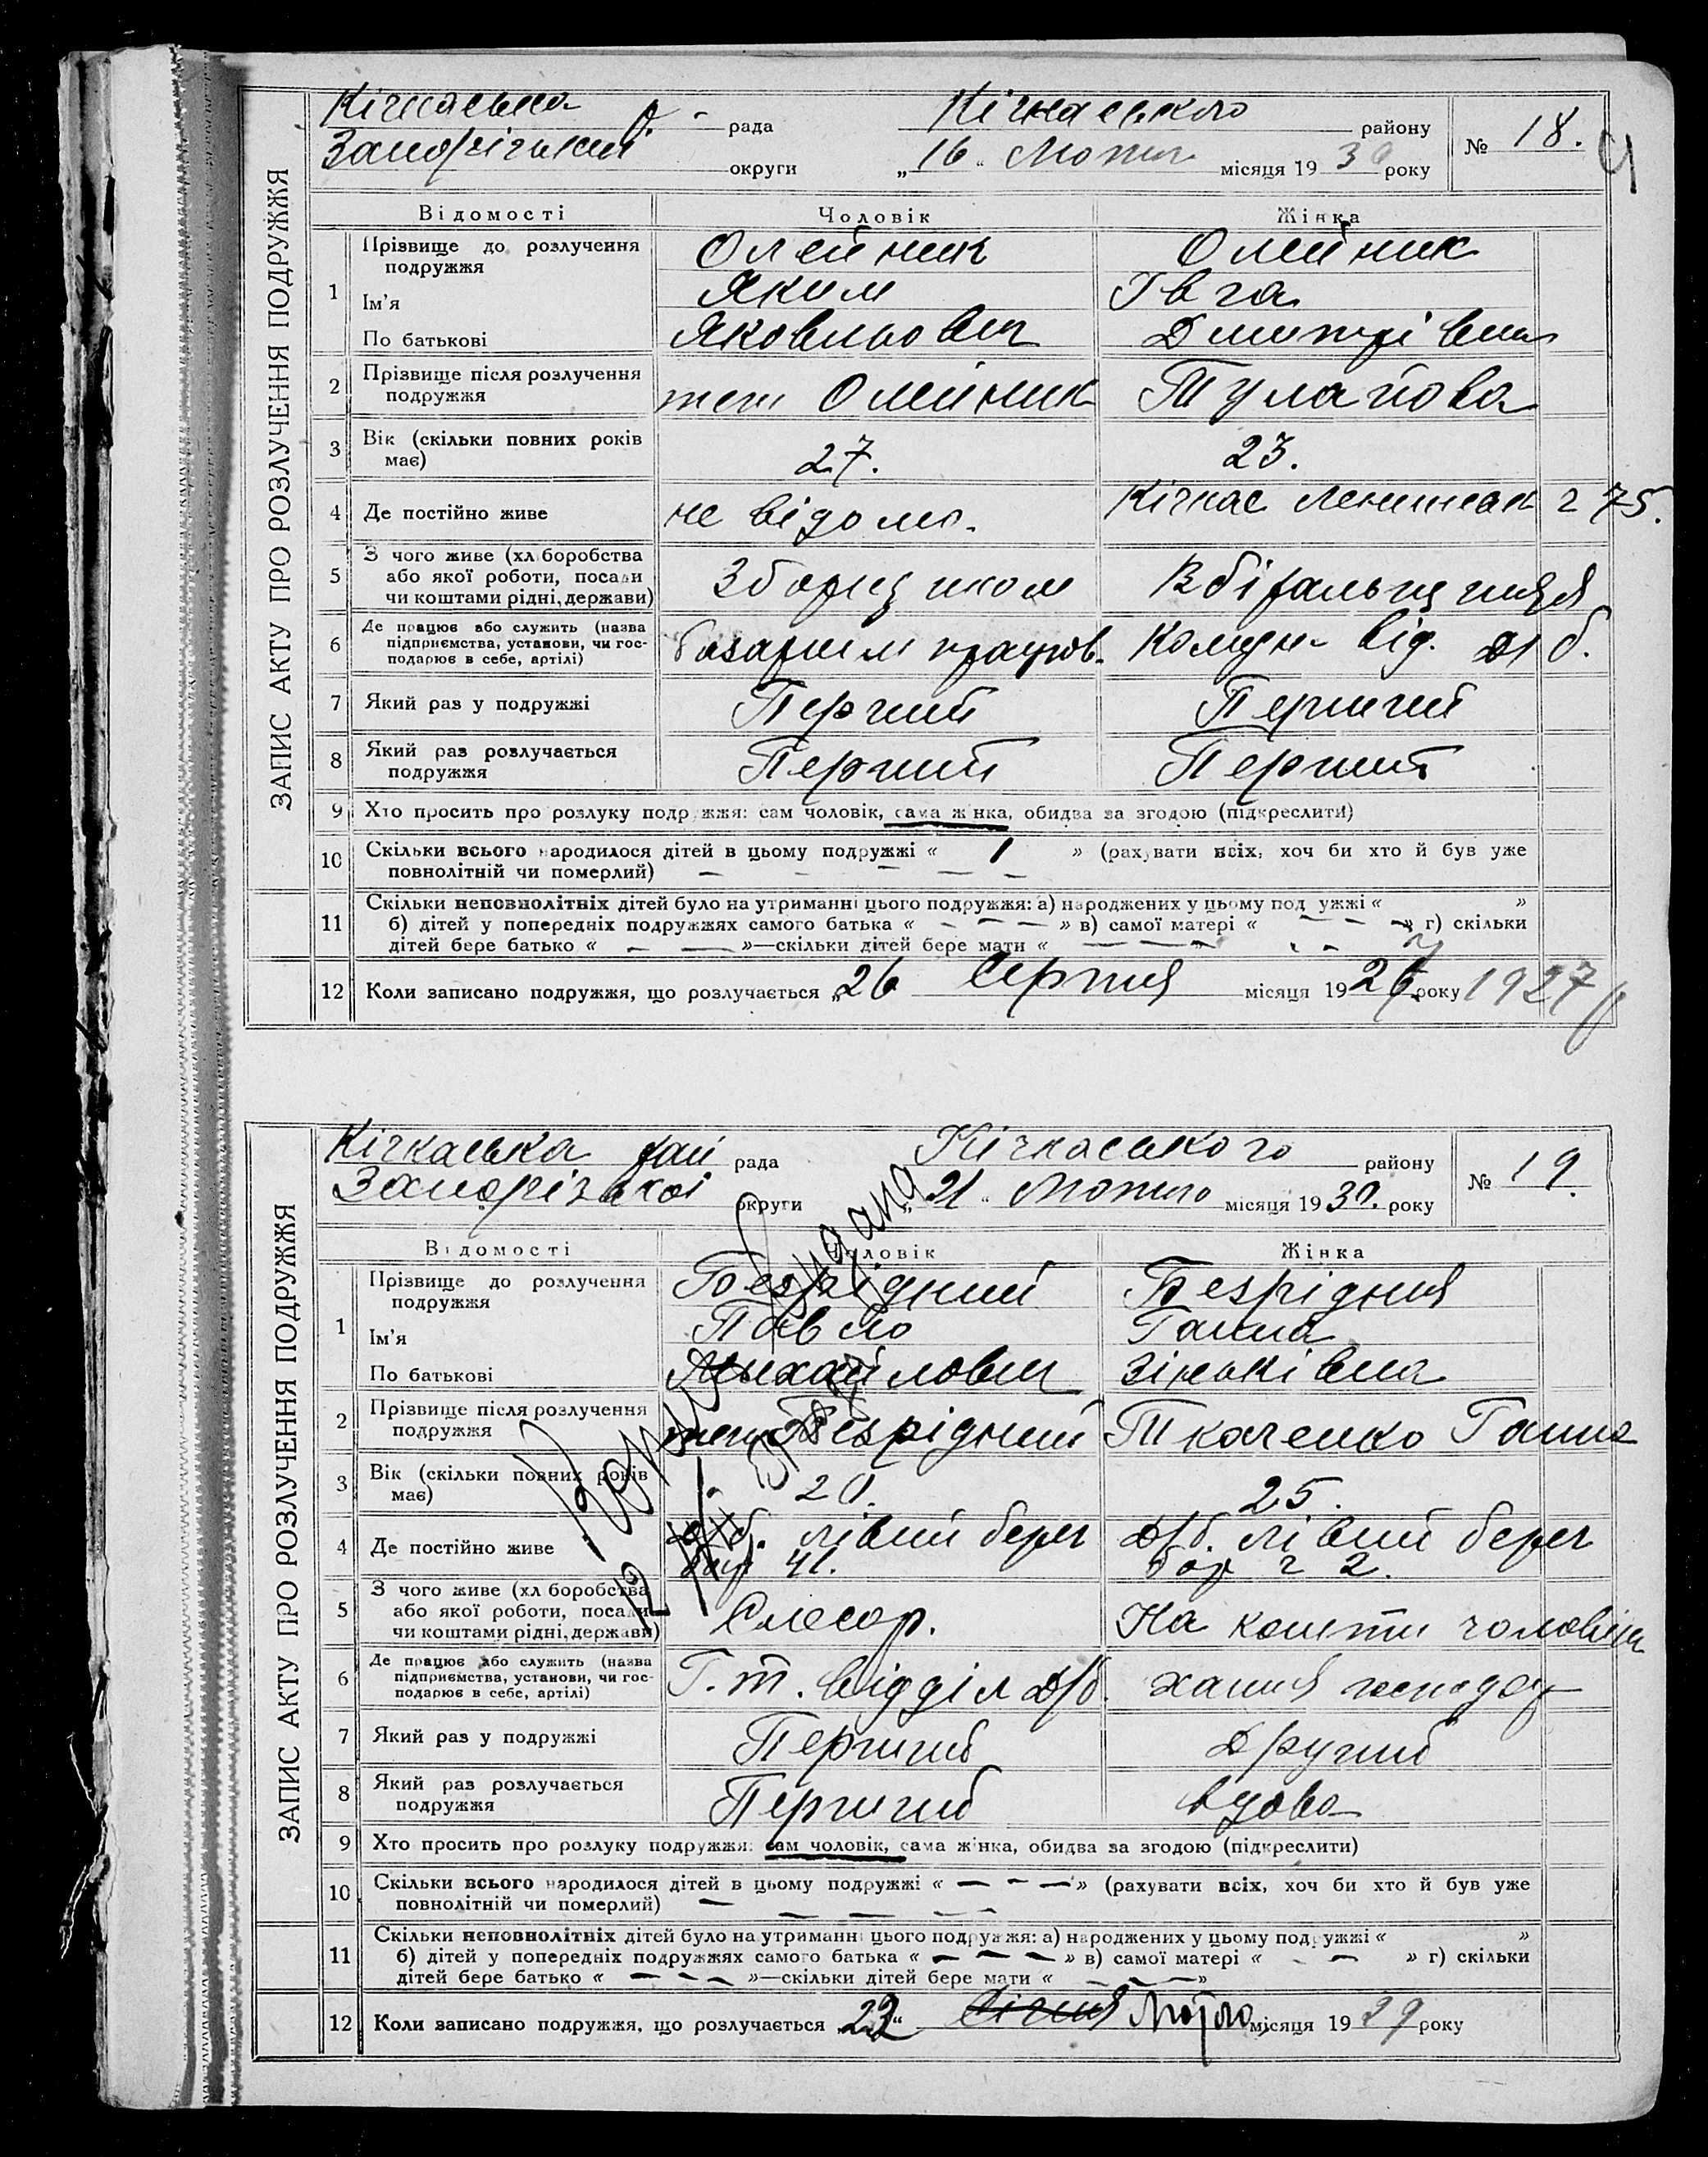 ЗАПИС АКТУ ПРО РОЗЛУЧЕННЯ ПОДРУЖЖЯ
Кічкаська рада Кічкаського району № 18.
Запорізької округи „16" Лютого місяця 1930 року
Відомості Чоловік Жінка
1 Прізвище до розлучення подружжя Олейник Олейник
Ім'я Яким Івга
По батькові Яковльович Дмитрівна
2 Прізвище після розлучення подружжя теж Олейник Тулапова
3 Вік (скільки повних років має) 27. 23.
4 Де постійно живе не відомо. Кічкас 75.
5 З чого живе (хліборобства або якої роботи, посади чи коштами рідні, держави) Зборщиком Вбіральщиця
6 Де працює або служить (назва підприємства, установи, чи господарює в себе, артілі) базарним Комун. від. Д/б.
7 Який раз у подружжі Перший Перший
8 Який раз розлучається подружжя Перший Перший
9 Хто просить про розлуку подружжя: сам чоловік, сама жінка, обидва за згодою (підкреслити)
10 Скільки всього народилося дітей в цьому подружжі « 1 » (рахувати всіх, хоч би хто й був уже
повнолітній чи померлий) —
11 Скільки неповнолітніх дітей було на утриманні цього подружжя: а) народжених у цьому подружжі « »
б) дітей у попередніх подружжях самого батька « — — — » в) самої матері « — — — » г) скільки
дітей бере батько « — — »—скільки дітей бере мати « — — — »
12 Коли записано подружжя, що розлучається „26 Серпня місяця 1926 року 1927 р
ЗАПИС АКТУ ПРО РОЗЛУЧЕННЯ ПОДРУЖЖЯ
Кічкаська рай рада Кічкаського району № 19.
Запорізької округи „21" Лютого місяця 1930. року
Відомості Чоловік Жінка
1 Прізвище до розлучення подружжя Безрідний Безрідня
Ім'я Павло Ганна
По батькові Михайлович Зіньківна
2 Прізвище після розлучення подружжя теж Безрідний Ткаченко Ганна
3 Вік (скільки повних років має) 20. 25.
4 Де постійно живе Д/б. лівий берег Д/б. лівий берег
бар 41. бар ч 2.
5 З чого живе (хліборобства або якої роботи, посади чи коштами рідні, держави) Слесар. На кошти чоловіка
6 Де працює або служить (назва підприємства, установи, чи господарює в себе, артілі) Г. т. відділ Д/б. хатня господар
7 Який раз у подружжі Перший Другий
8 Який раз розлучається подружжя Перший вдова
9 Хто просить про розлуку подружжя: сам чоловік, сама жінка, обидва за згодою (підкреслити)
10 Скільки всього народилося дітей в цьому подружжі « — — — » (рахувати всіх, хоч би хто й був уже
повнолітній чи померлий) —
11 Скільки неповнолітніх дітей було на утриманні цього подружжя: а) народжених у цьому подружжі « »
б) дітей у попередніх подружжях самого батька « — — — » в) самої матері « — — » г) скільки
дітей бере батько « — — — »—скільки дітей бере мати « — — — »
12 Коли записано подружжя, що розлучається „22" Січня Лютого місяця 1929 року